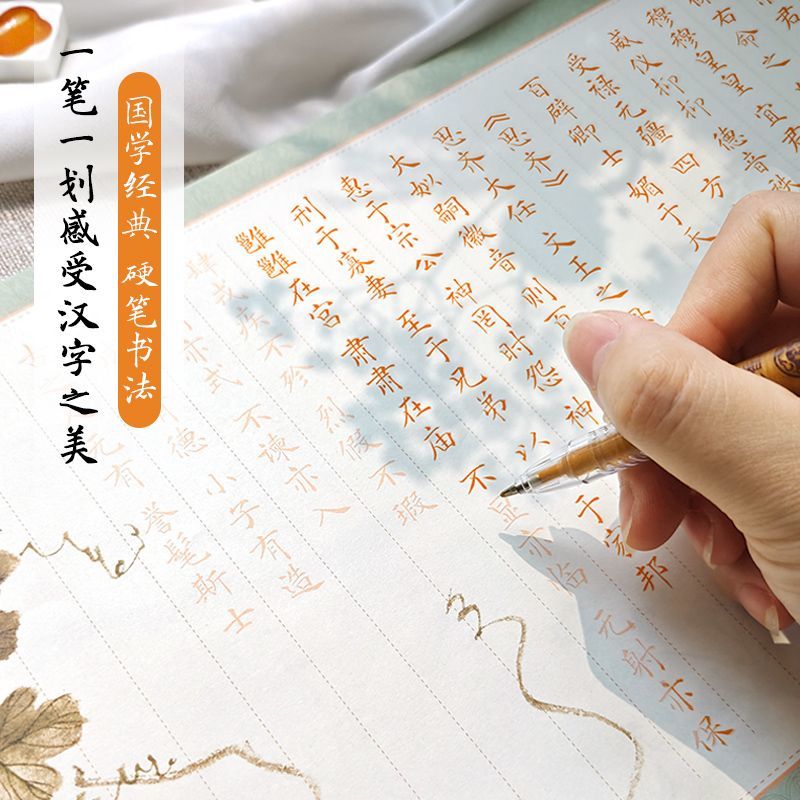 一笔一划感受汉字之美
国学经典 硬笔书法
君
保右命之
穆穆皇皇 宜君
威仪抑抑 德音秩
受禄无疆 四方
百辟卿士 媚于天
《思齐》
思齐大任 文王之母
大姒嗣徽音 则百
惠于宗公 神罔时怨 神
刑于寡妻 至于兄弟 以 于家邦
雝雝在宫 肃肃在庙 不显亦临 无射亦保
肆戎疾不殄 烈假不瑕
亦式 不谏亦入
德 小子有造
无有 誉髦斯士